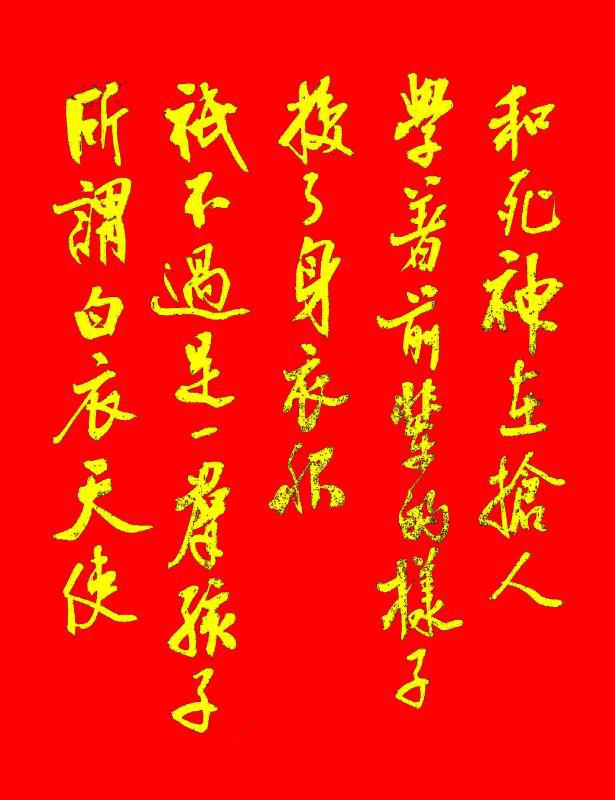 所謂白衣天使
祇不過是一羣孩子
換了身衣服
學著前輩的樣子
和死神在搶人